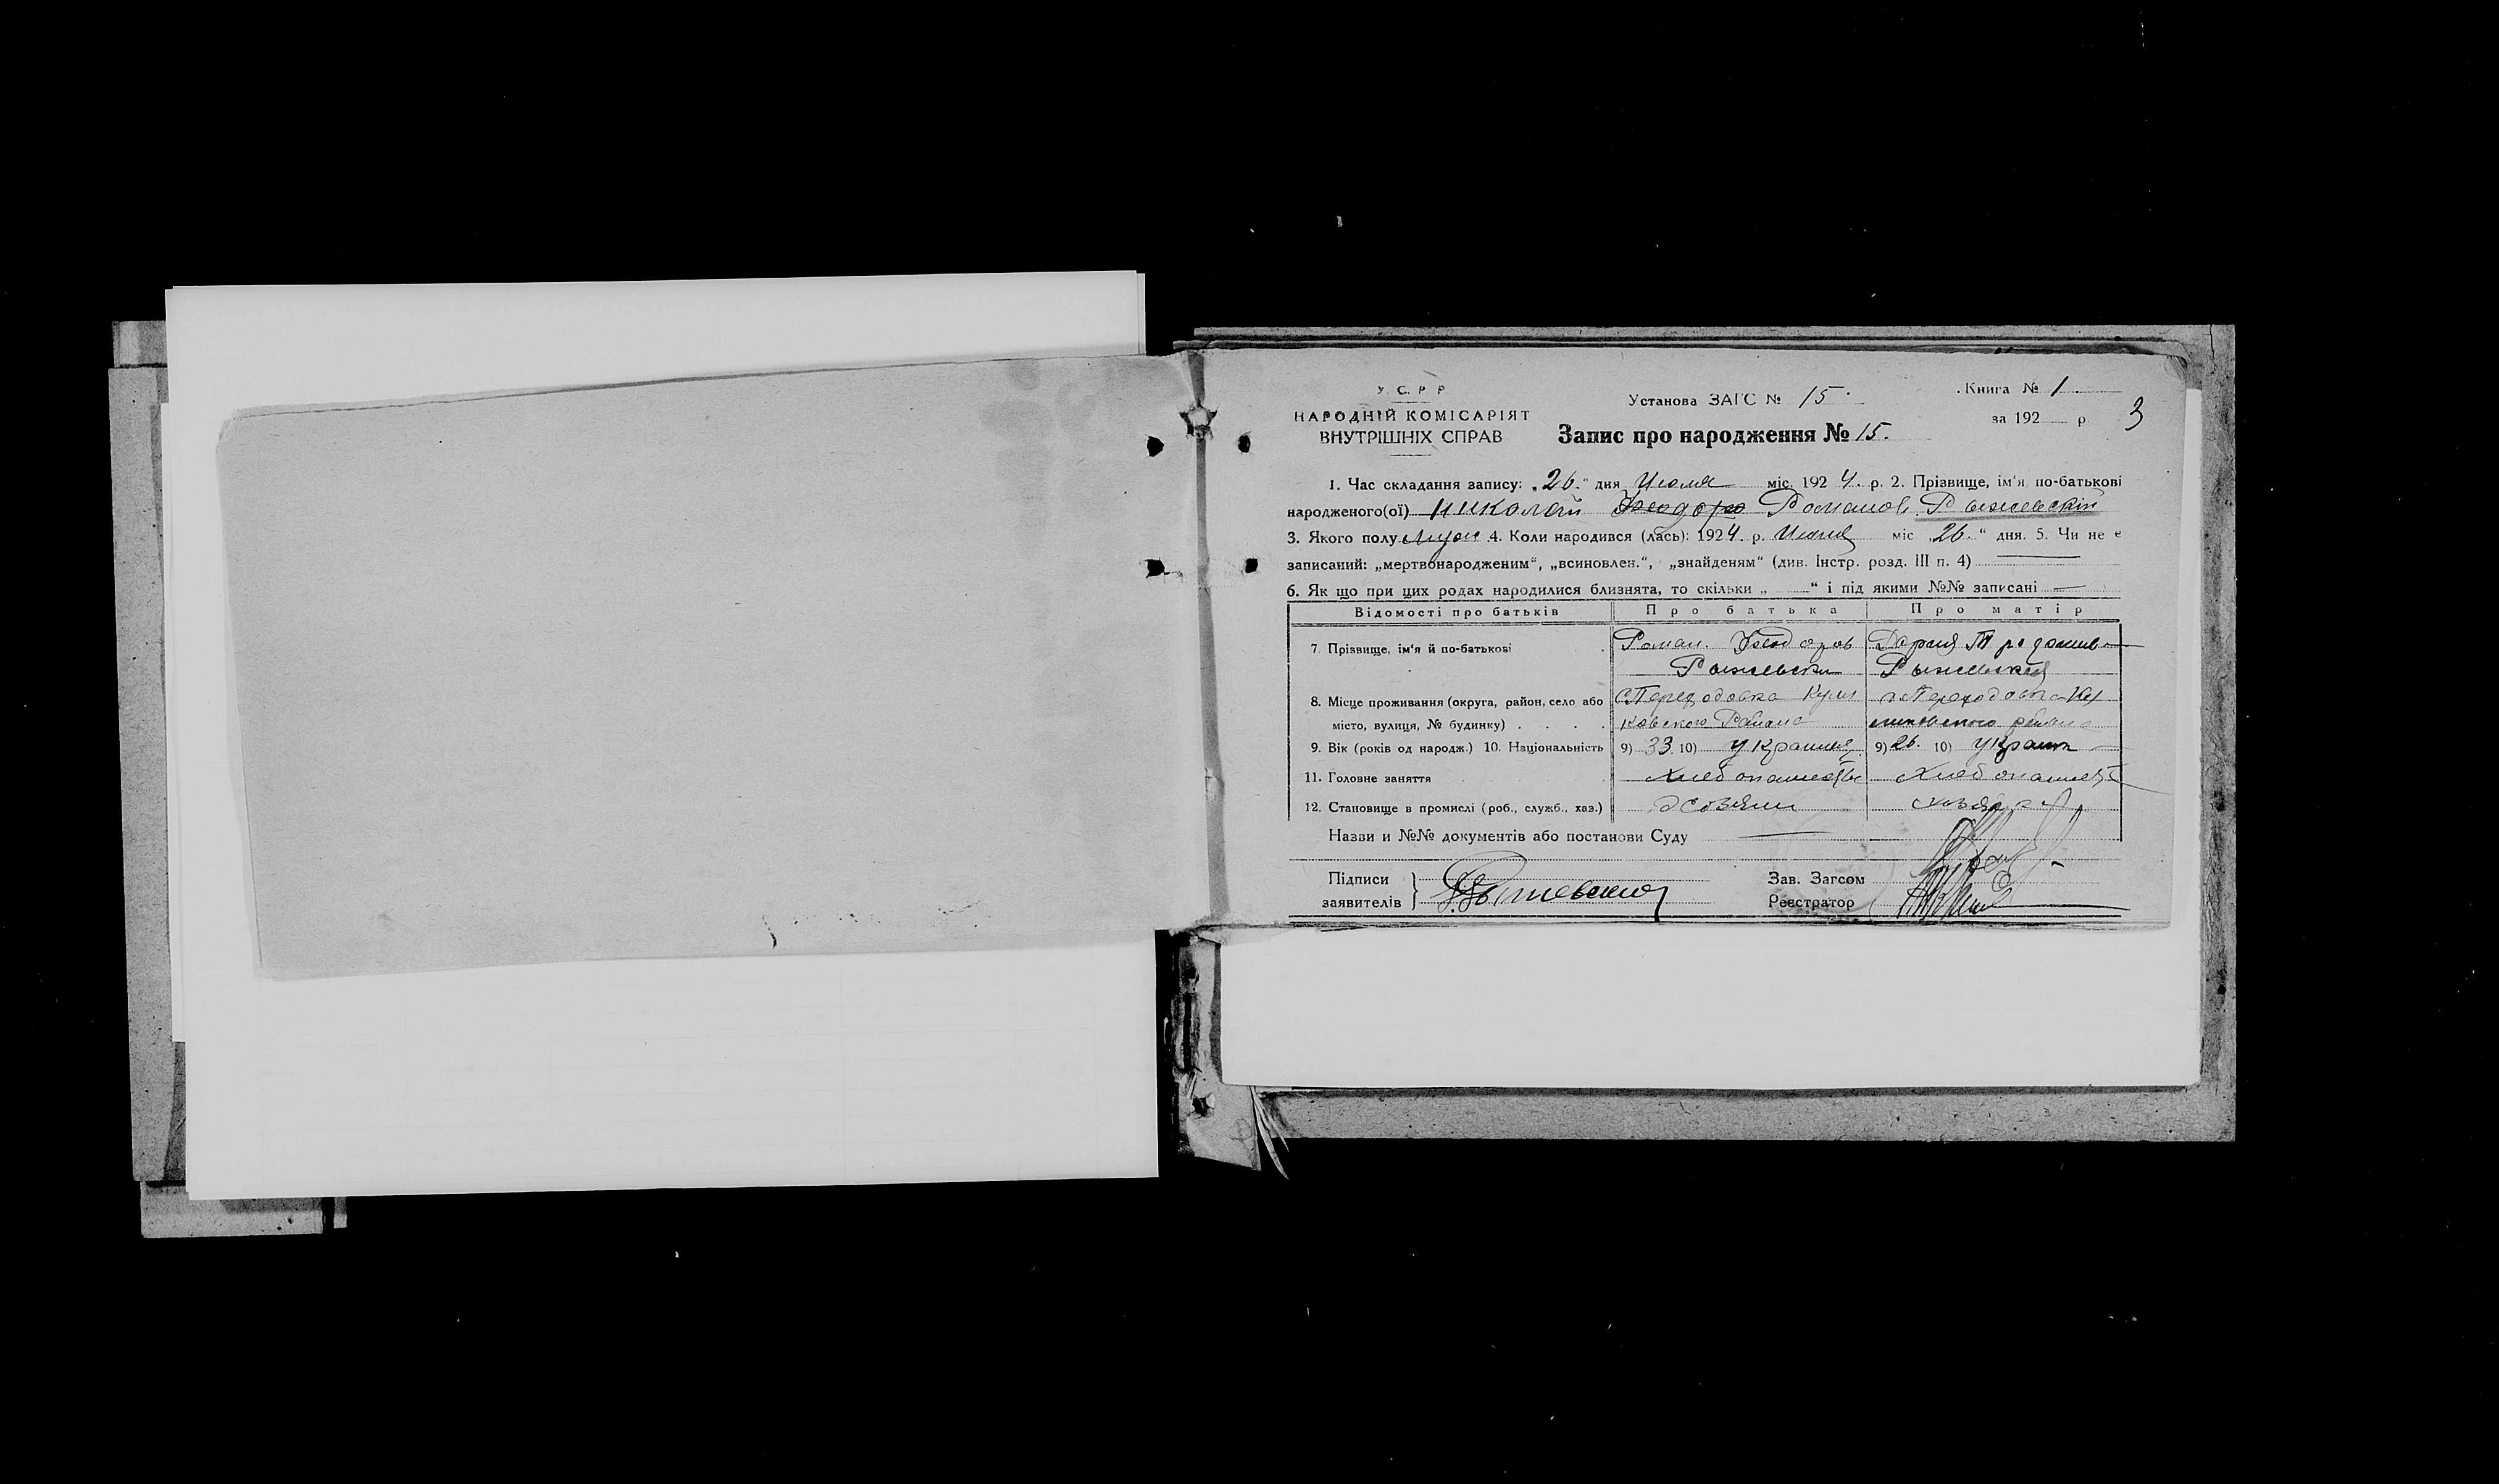 У. С. Р Р
НАРОДНІЙ КОМІСАРІЯТ
ВНУТРІШНІХ СПРАВ
Установа ЗАГС № 15.
Книга № 1.
за 192 р. 3
Запис про народження № 15.
1. Час складання запису: „26.“ дня Июля міс. 1924. р. 2. Прізвище, ім'я, по-батькові
народженого(ої) Николай Романов Рыжевскій
3. Якого полу муж 4. Коли народився (лась): 1924. р. міс „26.“ дня. 5. Чи не є
записаний: „мертвонародженим“, „всиновлен.“, „знайденям“ (див. Інстр. розд. III п. 4)
6. Як що при цих родах народилися близнята, то скільки „ “ і під якими №№ записані —
Відомості про батьків Про батька Про матір
7. Прізвище, ім'я й по-батькові Роман. Феодоров Дария
Рыжевски Рыжевская
8. Місце проживання (округа, район, село або с Переходовка Кули с Переходовка
місто, вулиця, № будинку) ковского Района района
9. Вік (років од народж.) 10. Національність 9) 33. 10) 9) 26. 10)
11. Головне заняття
12. Становище в промислі (роб., служб., хаз.)
Назви и №№ документів або постанови Суду —
Підписи
заявителів } Рыжевский
Зав. Загсом
Реєстратор